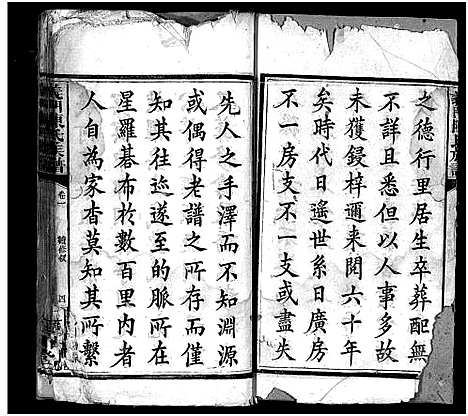 之德行里居生卒葬配無
不詳且悉但以人事多故
未獲鋟梓邇来閱六十年
矣時代日遥世系日廣房
不一房支不一支或盡失
先人之手澤而不知淵源
或偶得老譜之所存而僅
知其往迹遂至的脈所在
星羅碁布於數百里内者
人自為家杳莫知其所繫
義門陳氏宗譜
卷一
續修叙
四